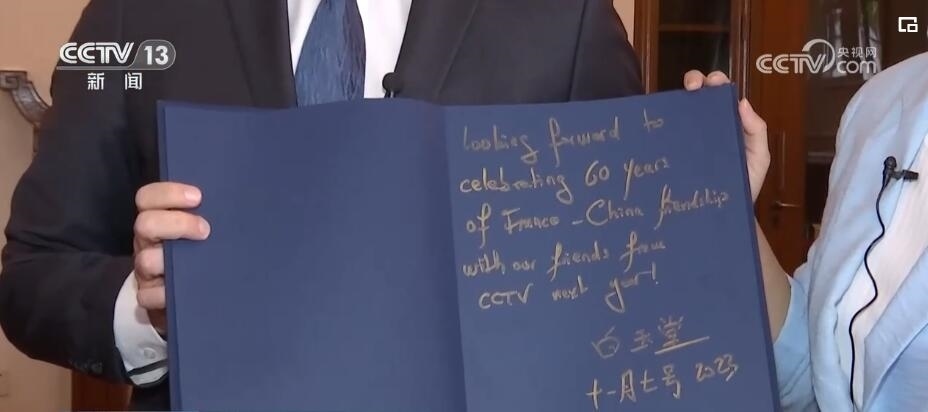 CCTV 13
新闻
CCTV 央视网
com
Looking forward to
celebrating 60 years
of Franco-China friendship
with our friends from
CCTV next year!
白玉堂
十一月七号 2023